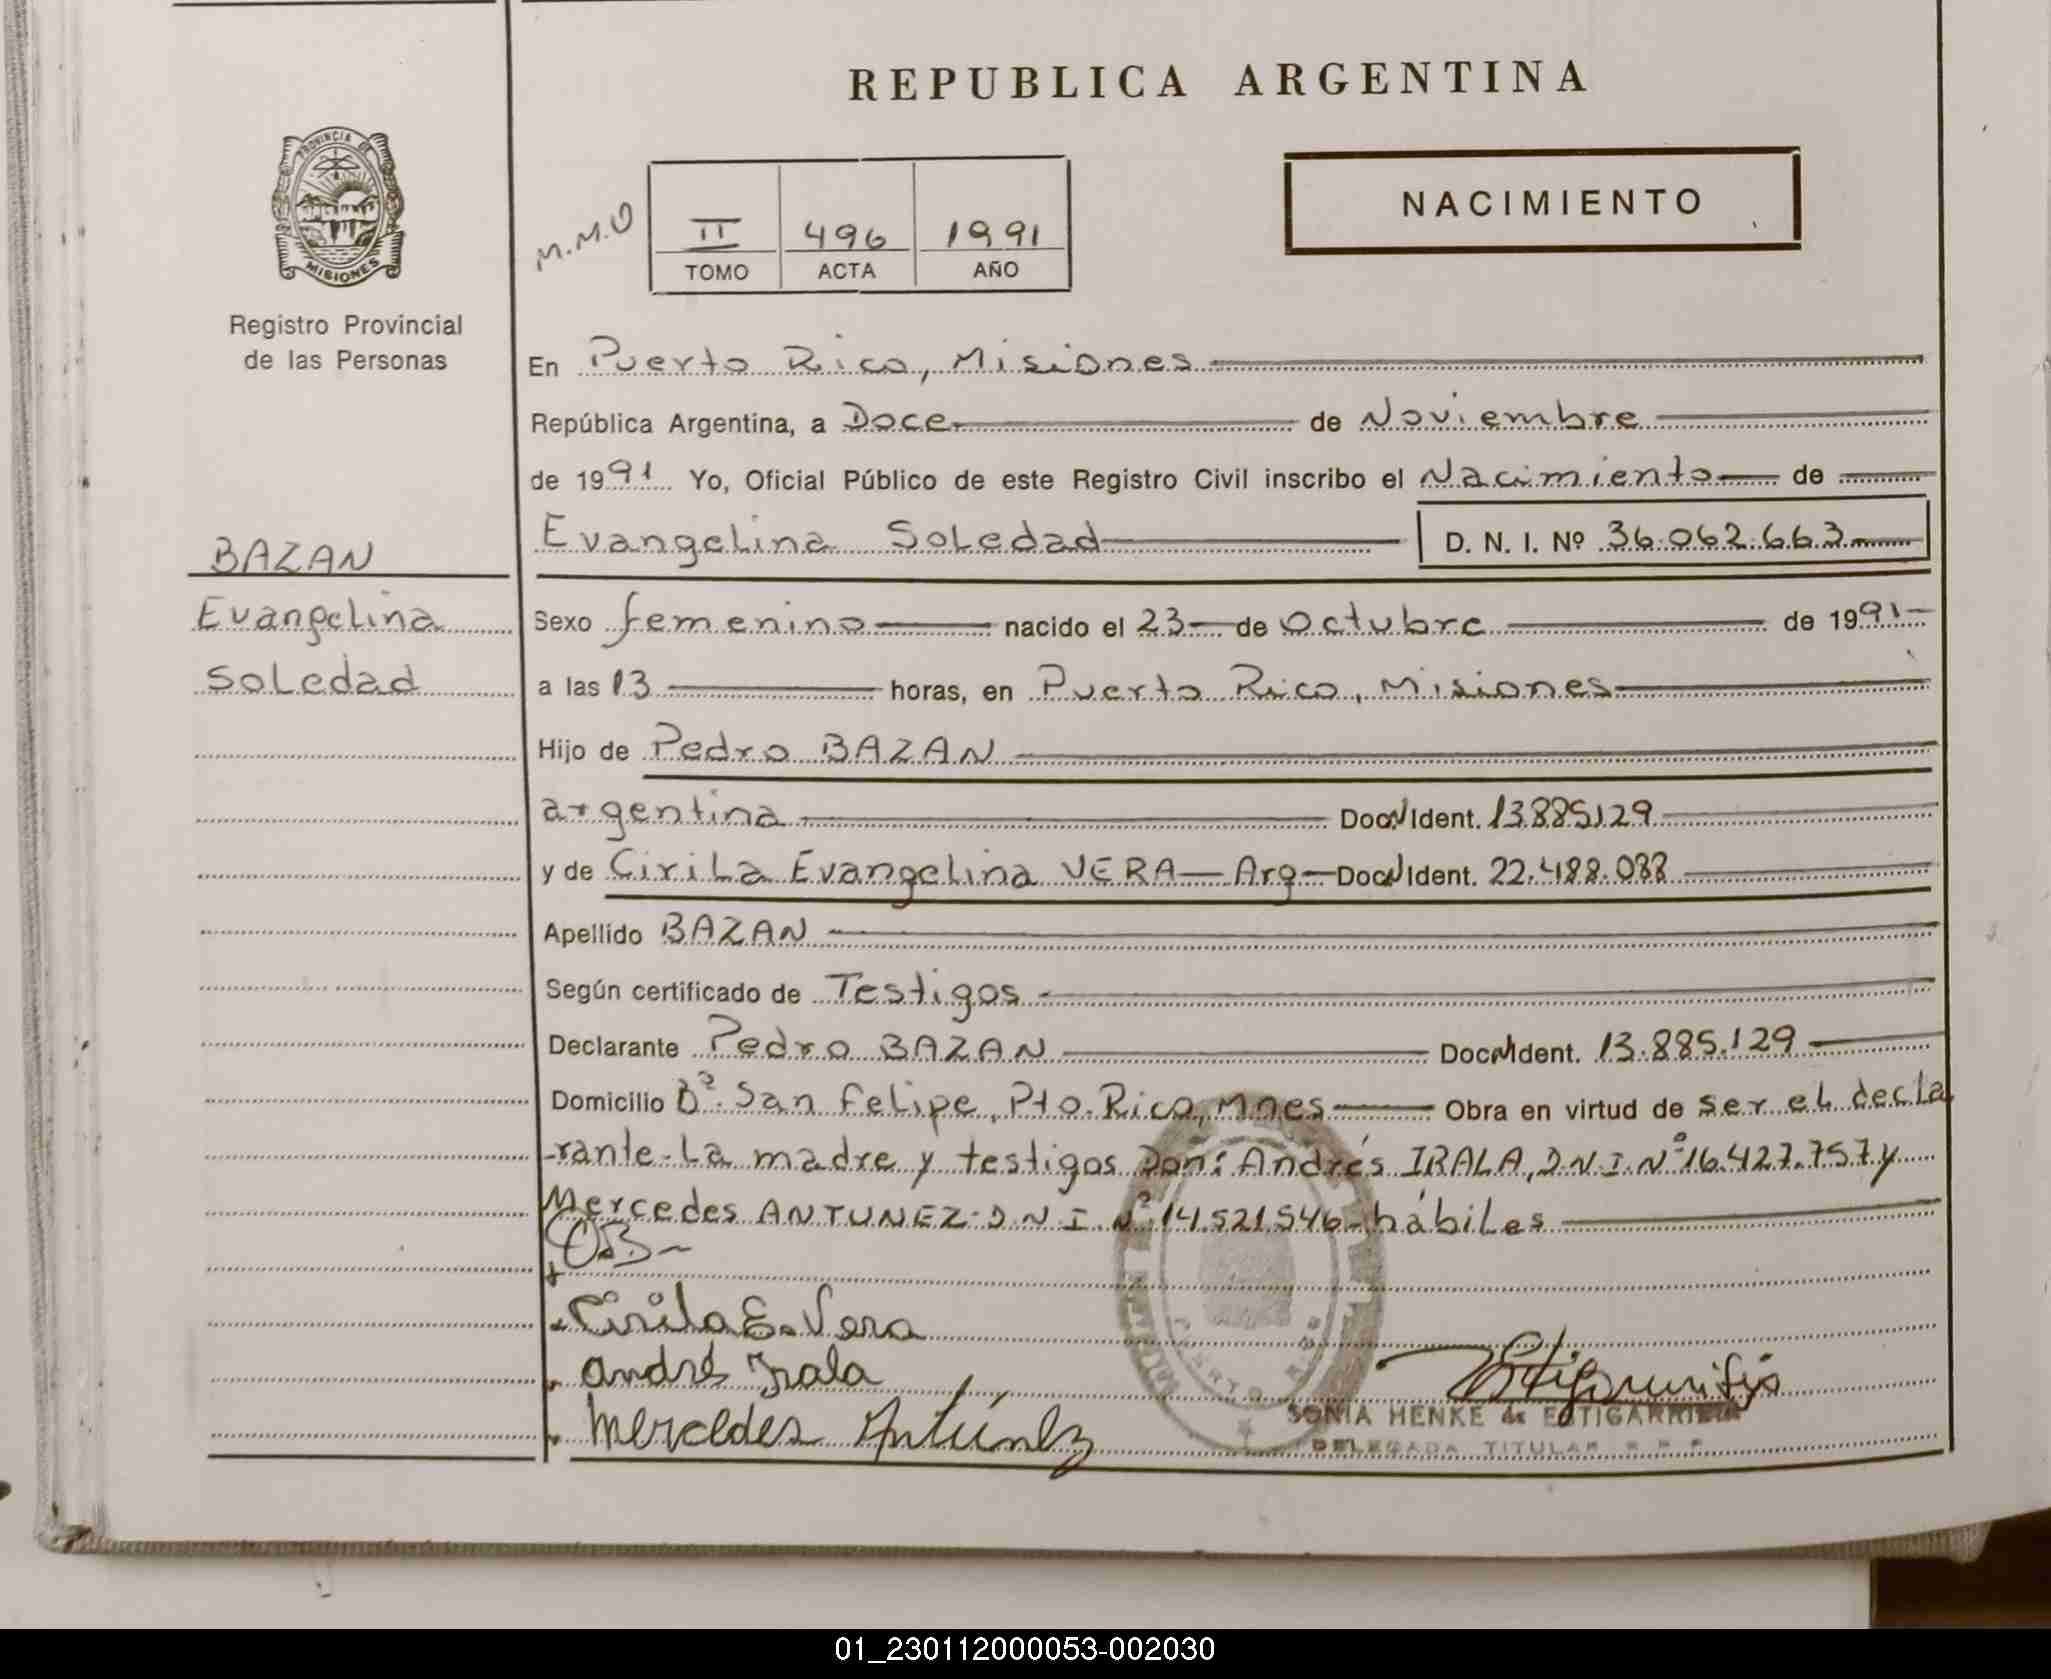 REPUBLICA ARGENTINA
PROVINCIA DE
MISIONES
NACIMIENTO
M.M.O
II 496 1991
TOMO ACTA AÑO
Registro Provincial
de las Personas
En Puerto Rico, Misiones
República Argentina, a Doce de Noviembre
de 1991 Yo, Oficial Público de este Registro Civil inscribo el Nacimiento de
Evangelina Soledad D. N. I. Nº 36.062.663
BAZAN
Evangelina
Soledad
Sexo femenino nacido el 23 de Octubre de 1991
a las 13 horas, en Puerto Rico, Misiones
Hijo de Pedro BAZAN
argentina Doc. Ident. 13.885.129
y de Cirila Evangelina VERA - Arg - Doc. Ident. 22.488.088
Apellido BAZAN
Según certificado de Testigos
Declarante Pedro BAZAN Doc. Ident. 13.885.129
Domicilio Bº. San Felipe, Pto. Rico, Mnes Obra en virtud de ser el decla
rante - La madre y testigos Don: Andrés IRALA, D N I Nº 16.427.757 y
Mercedes ANTUNEZ - D N I Nº 14.521.546 - hábiles
Cirila E. Vera
andrés Irala
Mercedes Antúnez
SONIA HENKE de ESTIGARRIBIA
DELEGADA TITULAR R P P
01_230112000053-002030